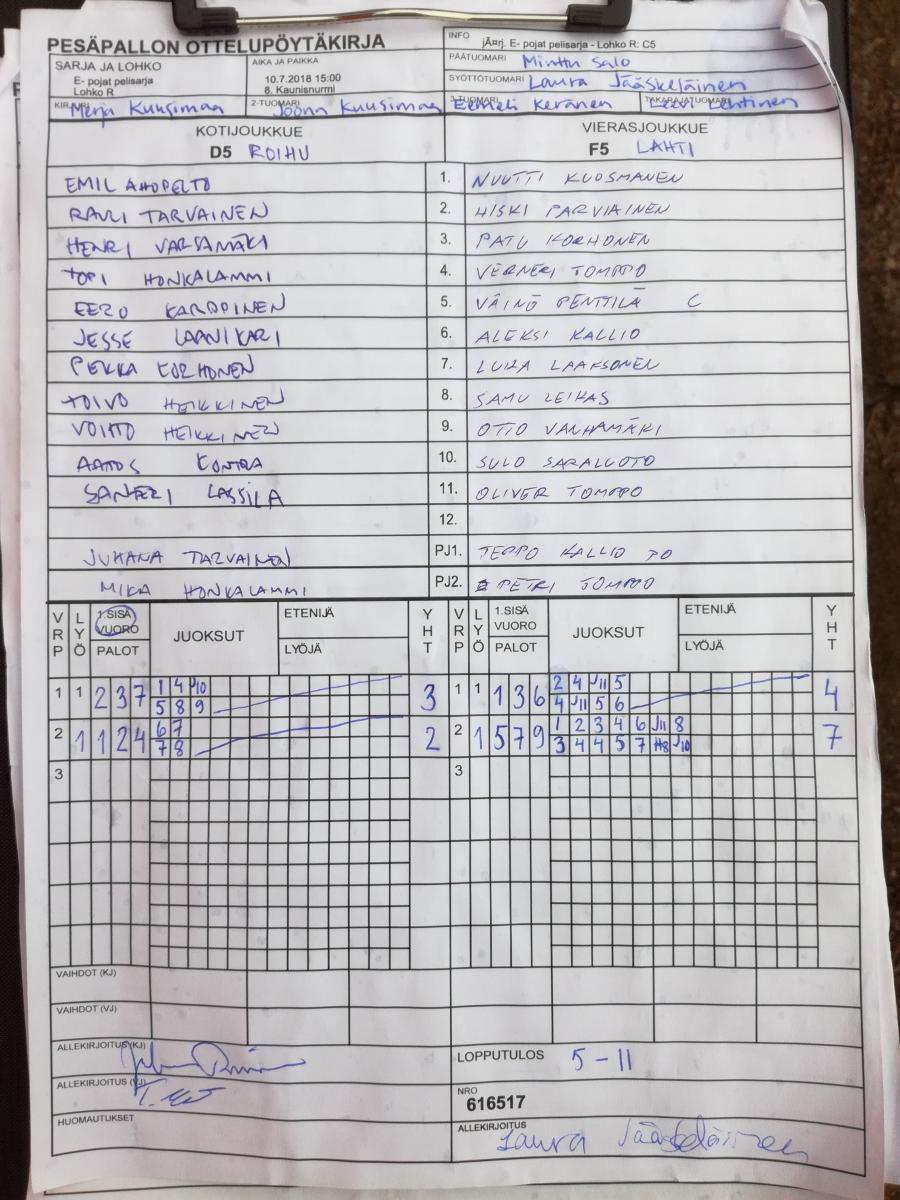 PESÄPALLON OTTELUPÖYTÄKIRJA
INFO
jÄ¤rj. E- pojat pelisarja - Lohko R: C5
SARJA JA LOHKO
E- pojat pelisarja
Lohko R
AIKA JA PAIKKA
10.7.2018 15:00
8. Kaunisnurmi
PÄÄTUOMARI Minttu Salo
SYÖTTÖTUOMARI Laura Jääskeläinen
Merja Kuusimaa
2-TUOMARI Joona Kuusimaa
3-TUOMARI Eemeli Keränen
TAKARAJATUOMARI Eevi Lehtinen
KOTIJOUKKUE
D5 ROIHU
VIERASJOUKKUE
F5 LAHTI
EMIL AHOPELTO 1. NUUTTI KUOSMANEN
RAULI TARVAINEN 2. HISKI PARVIAINEN
HENRI VARSAMÄKI 3. PATU KORHONEN
TOPI HONKALAMMI 4. VERNERI TOMPPO
EERO KARPPINEN 5. VÄINÖ PENTTILÄ C
JESSE LAANIKARI 6. ALEKSI KALLIO
PEKKA KORHONEN 7. LUKA LAAKSONEN
TOIVO HEIKKINEN 8. SAMU LEIKAS
VOITTO HEIKKINEN 9. OTTO VANHAMÄKI
AATOS KONTRA 10. SULO SARALUOTO
SANTERI LASSILA 11. OLIVER TOMPPO
12.
JUHANA TARVAINEN PJ1. TEPPO KALLIO PO
MIKA HONKALAMMI PJ2. PETRI TOMPPO
VRP LYÖ 1.SISÄ VUORO PALOT JUOKSUT ETENIJÄ LYÖJÄ YHT VRP LYÖ 1.SISÄ VUORO PALOT JUOKSUT ETENIJÄ LYÖJÄ YHT
1 1 2 3 7 1 4 J10 3 1 1 1 3 6 2 4 J11 5 4
5 8 9 4 J11 5 6
2 1 1 2 4 6 7 2 2 1 5 7 9 1 2 3 4 6 J11 8 7
7 8 3 4 4 5 7 H8 J10
3 3
VAIHDOT (KJ)
VAIHDOT (VJ)
ALLEKIRJOITUS (KJ)
LOPPUTULOS 5 - 11
ALLEKIRJOITUS (VJ)
NRO
616517
HUOMAUTUKSET
ALLEKIRJOITUS
Laura Jääskeläinen